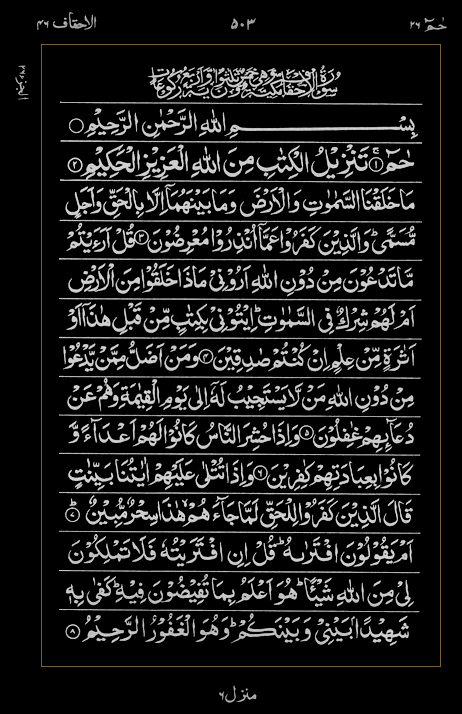 حٰمٓ ٢٦ ٥٠٣ الاحقاف ٤٦
بِسْمِ اللّٰهِ الرَّحْمٰنِ الرَّحِيْمِ
حٰمٓ ۝١ تَنْزِيْلُ الْكِتٰبِ مِنَ اللّٰهِ الْعَزِيْزِ الْحَكِيْمِ ۝٢
مَا خَلَقْنَا السَّمٰوٰتِ وَالْاَرْضَ وَمَا بَيْنَهُمَاۤ اِلَّا بِالْحَقِّ وَاَجَلٍ
مُّسَمًّىؕ وَالَّذِيْنَ كَفَرُوْا عَمَّاۤ اُنْذِرُوْا مُعْرِضُوْنَ ۝٣ قُلْ اَرَءَيْتُمْ
مَّا تَدْعُوْنَ مِنْ دُوْنِ اللّٰهِ اَرُوْنِيْ مَاذَا خَلَقُوْا مِنَ الْاَرْضِ
اَمْ لَهُمْ شِرْكٌ فِي السَّمٰوٰتِؕ اِيْتُوْنِيْ بِكِتٰبٍ مِّنْ قَبْلِ هٰذَاۤ اَوْ
اَثٰرَةٍ مِّنْ عِلْمٍ اِنْ كُنْتُمْ صٰدِقِيْنَ ۝٤ وَمَنْ اَضَلُّ مِمَّنْ يَّدْعُوْا
مِنْ دُوْنِ اللّٰهِ مَنْ لَّا يَسْتَجِيْبُ لَهٗۤ اِلٰى يَوْمِ الْقِيٰمَةِ وَهُمْ عَنْ
دُعَآئِهِمْ غٰفِلُوْنَ ۝٥ وَاِذَا حُشِرَ النَّاسُ كَانُوْا لَهُمْ اَعْدَآءً وَّ
كَانُوْا بِعِبَادَتِهِمْ كٰفِرِيْنَ ۝٦ وَاِذَا تُتْلٰى عَلَيْهِمْ اٰيٰتُنَا بَيِّنٰتٍ
قَالَ الَّذِيْنَ كَفَرُوْا لِلْحَقِّ لَمَّا جَآءَهُمْ هٰذَا سِحْرٌ مُّبِيْنٌ ۝٧
اَمْ يَقُوْلُوْنَ افْتَرٰىهُؕ قُلْ اِنِ افْتَرَيْتُهٗ فَلَا تَمْلِكُوْنَ
لِيْ مِنَ اللّٰهِ شَيْـًٔاؕ هُوَ اَعْلَمُ بِمَا تُفِيْضُوْنَ فِيْهِؕ كَفٰى بِهٖ
شَهِيْدًۢا بَيْنِيْ وَبَيْنَكُمْؕ وَهُوَ الْغَفُوْرُ الرَّحِيْمُ ۝٨
منزل ٦